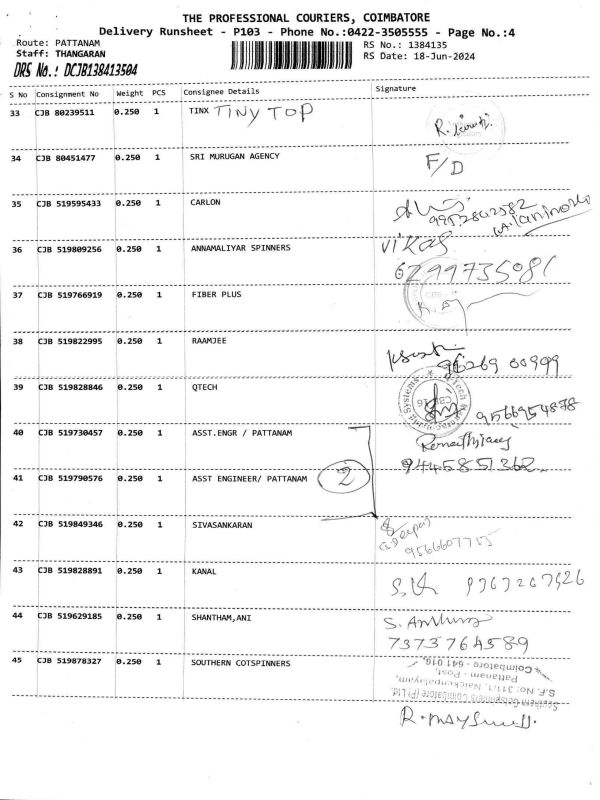 THE PROFESSIONAL COURIERS, COIMBATORE
Delivery Runsheet - P103 - Phone No.:0422-3505555 - Page No.:4
Route: PATTANAM
Staff: THANGARAN
RS No.: 1384135
RS Date: 18-Jun-2024
DRS No.: DCJB138413504
S No Consignment No Weight PCS Consignee Details Signature
33 CJB 80239511 0.250 1 TINX TINY TOP
34 CJB 80451477 0.250 1 SRI MURUGAN AGENCY F/D
35 CJB 519595433 0.250 1 CARLON
36 CJB 519809256 0.250 1 ANNAMALIYAR SPINNERS vikas
6299735081
37 CJB 519766919 0.250 1 FIBER PLUS
38 CJB 519822995 0.250 1 RAAMJEE
96269 00999
39 CJB 519828846 0.250 1 QTECH
9566954878
40 CJB 519730457 0.250 1 ASST.ENGR / PATTANAM
9445851362
41 CJB 519790576 0.250 1 ASST ENGINEER/ PATTANAM 2
42 CJB 519849346 0.250 1 SIVASANKARAN
43 CJB 519828891 0.250 1 KANAL
44 CJB 519629185 0.250 1 SHANTHAM,ANI
7373764589
45 CJB 519878327 0.250 1 SOUTHERN COTSPINNERS
Southern Cotspinners Coimbatore (P) Ltd.
S.F. No: 311/1, Naickenpalayam,
Pattanam - Post,
Coimbatore - 641 016.